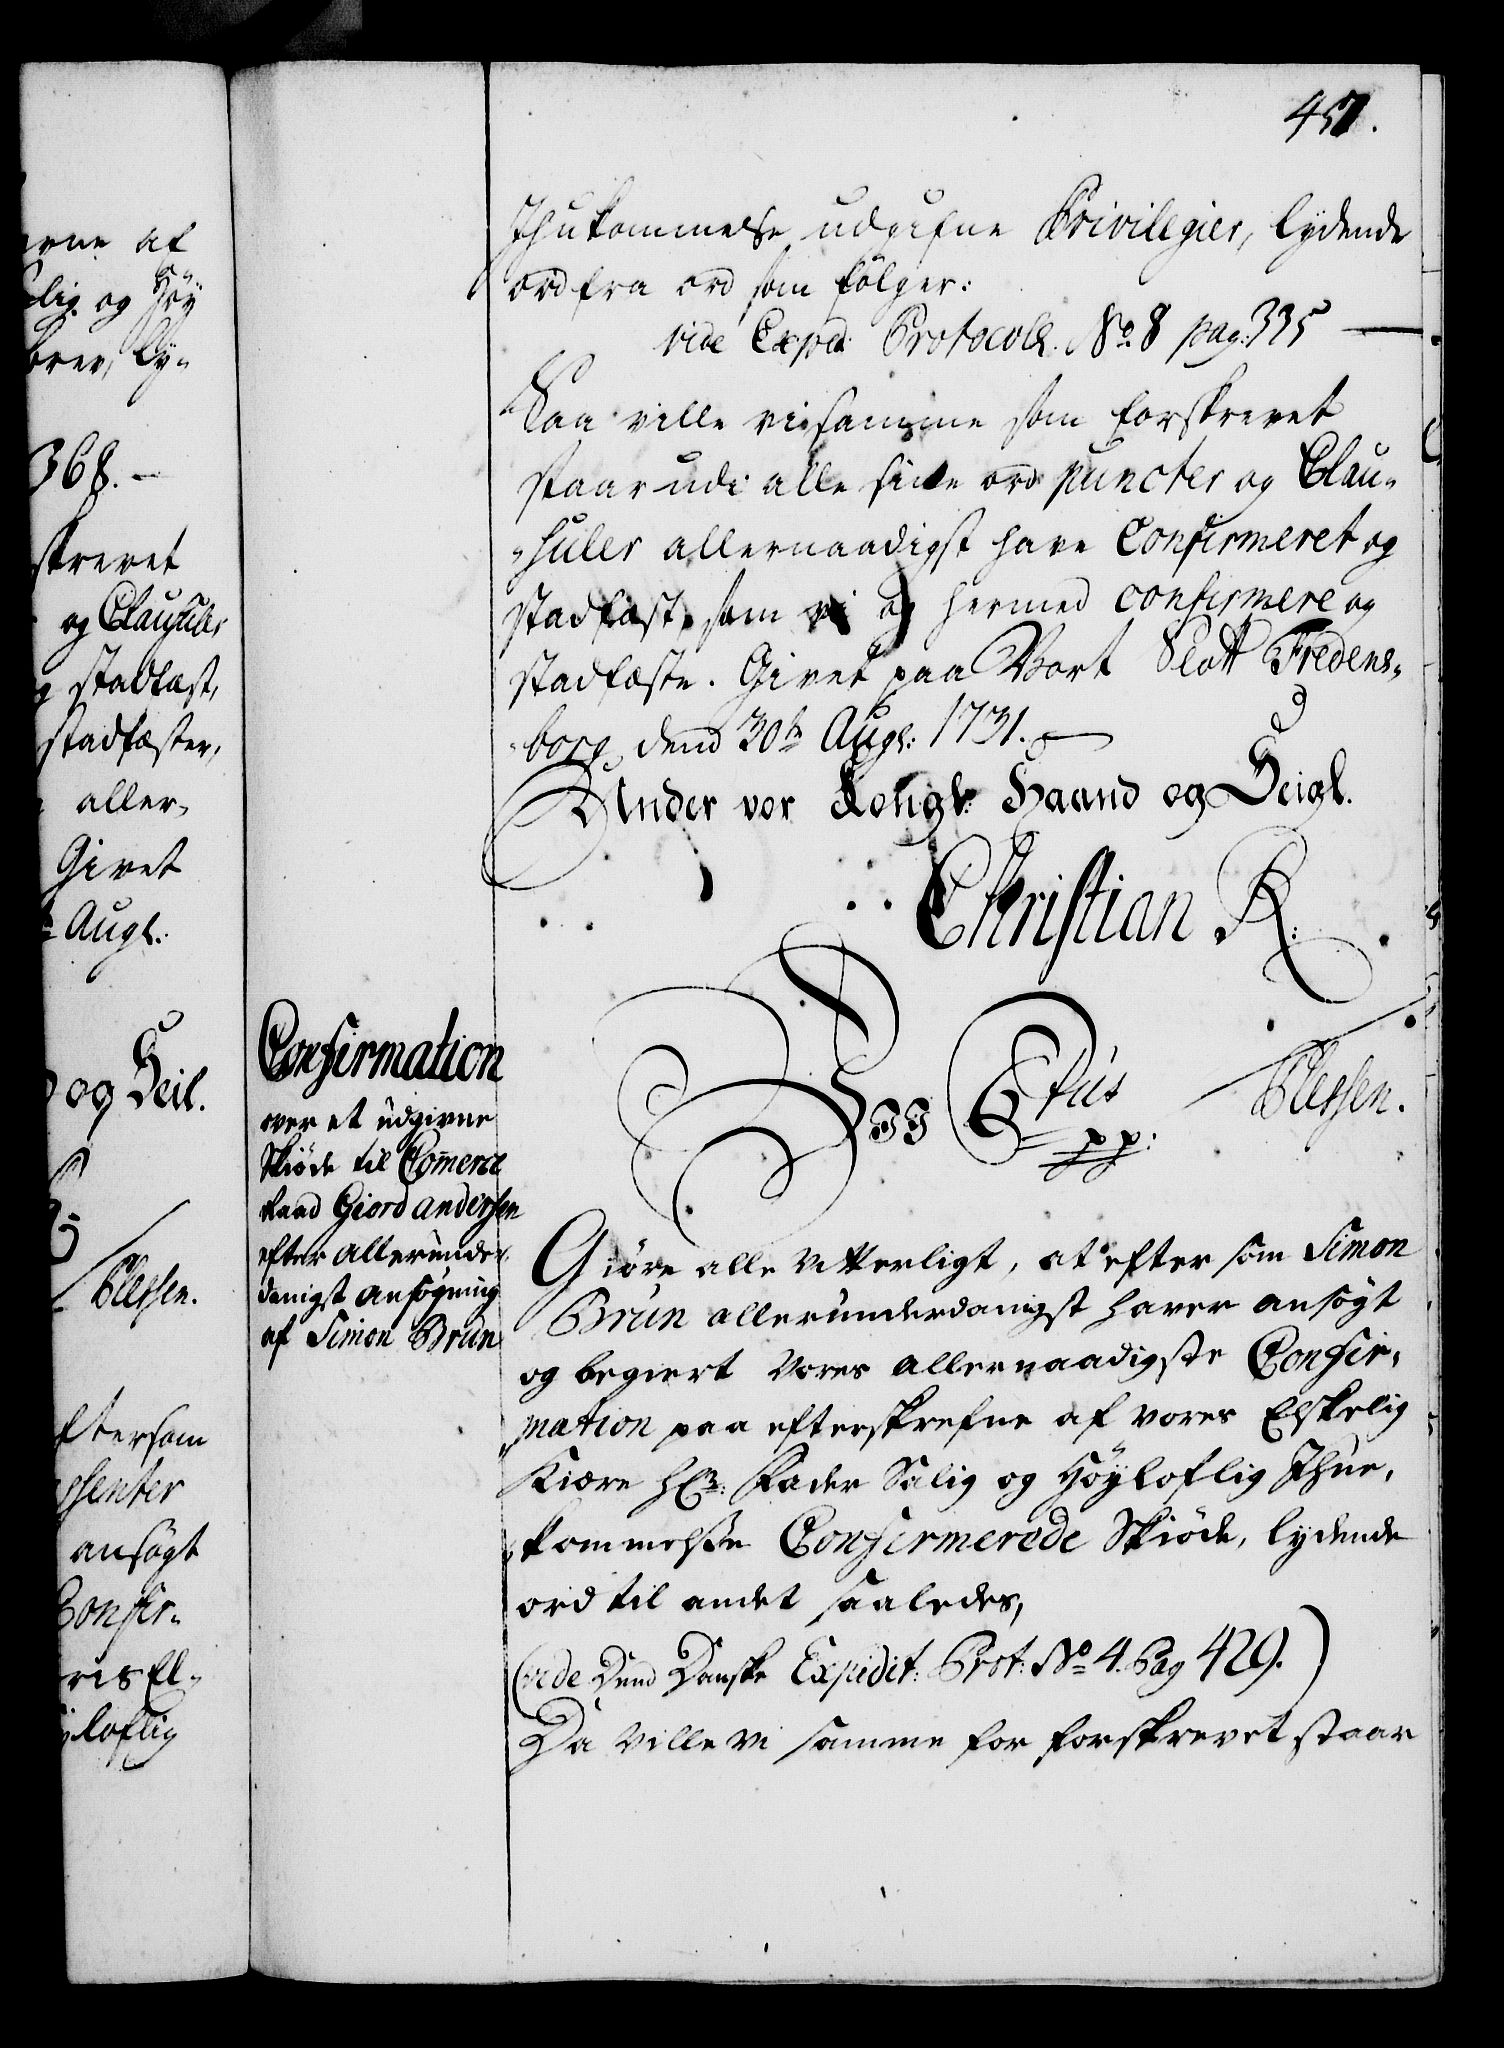 457.
Ihukommelse udgifne Privilegier, lydende
ord fra ord som følger:
vide Exped: Protocoll. No. 8 pag: 335
Saa ville vi samme som forskrevet
staar udi alle sine ord puncter og Clau-
-suler allernaadigst have Confirmeret og
stadfæst, som vi og hermed confirmere og
stadfæste. Givet paa Vort Slott Fredens-
-borg dend 30te Augl: 1731.
Under vor Kongl: Haand og Seigl.
Christian R:
Plessen.
Confirmation
over et udgivne
Skiöde til Comerce
Raad Giord andersen
efter allerunder-
danigst ansøgning
af Simon Brun
Vii CVItus
pp:
Giöre alle Vitterligt, at efter som Simon
Brun allerunderdanigst haver ansögt
og begiert Vores allernaadigste Confir-
mation paa efterskrefne af vores Elskelig
Kiære Hr: Fader Salig og Höyloflig Ihue-
-kommelsse Confirmerede Skiöde, lydende
ord til andet saaledes,
(vide Dend Danske Expedit: Prot: No 4. Pag 429.)
Da Ville Vi samme for forskrevet staar
erne af
lig og Höy
brev, ly-
368.
skrevet
og Clausuler
og stadfæst,
stadfæster,
aller-
Givet
Augl:
og Seil.
Plessen.
eftersom
ansögt
Confir-
res El-
loflig